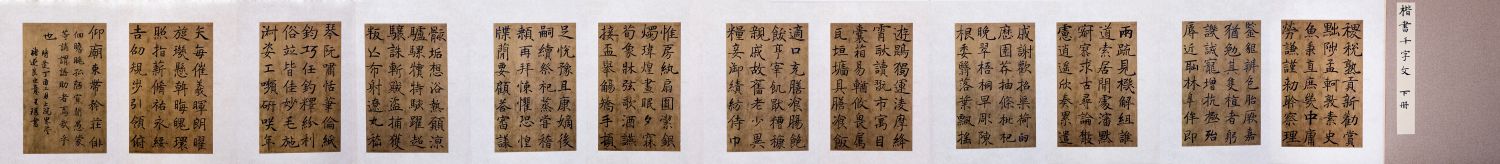 楷書千字文 下冊
稷稅熟貢新勸賞
黜陟孟軻敦素史
魚秉直庶幾中庸
勞謙謹勅聆察理
鑒貌辨色貽厥嘉
猷勉其祗植省躬
譏誡寵增抗極殆
辱近恥林皋幸即
兩疏見機解組誰
逼索居閒處沉默
寂寥求古尋論散
慮逍遙欣奏累遣
慼謝歡招渠荷的
歷園莽抽條枇杷
晚翠梧桐早彫陳
根委翳落葉飄颻
遊鵾獨運凌摩絳
霄耽讀翫市寓目
囊箱易輶攸畏屬
耳垣牆具膳飡飯
適口充膳飡腸飽
飫烹宰飢厭糟糠
親戚故舊老少異
糧妾御績紡侍巾
帷房紈扇圓潔銀
燭煒煌晝眠夕寐
筍象牀弦歌酒讌
接盃舉觴矯手頓
足悅豫且康嫡後
嗣續祭祀蒸嘗稽
顙再拜悚懼恐惶
牒簡要顧答審詳
骸垢想浴熱願涼
驢騾犢特駭躍超
驤誅斬賊盜捕獲
叛亡布射遼丸嵇
琴阮嘯恬筆倫紙
鈞巧任釣釋紛利
俗竝皆佳妙毛施
淑姿工嚬研咲年
矢每催羲暉朗曜
旋璣懸斡晦魄環
照指薪脩祜永綏
吉劭矩步引領俯
仰廟束帶矜莊徘
徊瞻眺孤陋寡聞愚蒙
等誚謂語助者焉哉乎
也